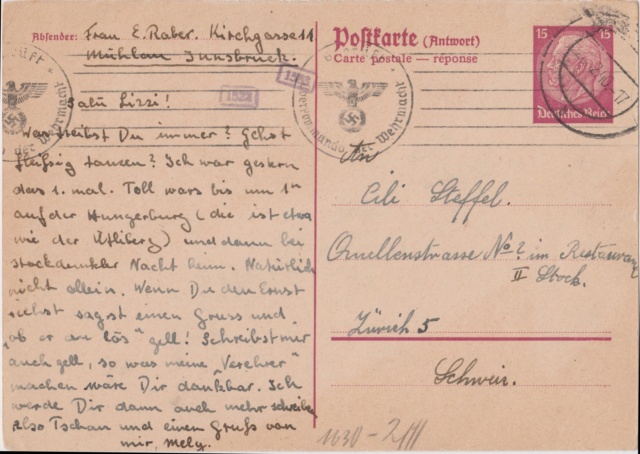 Absender: Frau E. Raber. Kirchgasse 11
Mühlau Innsbruck.
Salü Lizzi!
Was treibst Du immer? Gehst
fleißig tanzen? Ich war gestern
das 1. mal. Toll wars bis um 1
auf der Hungerburg (die ist etwa
wie der Ütliberg) und dann bei
stockdunkler Nacht heim. Natürlich
nicht allein. Wenn Du den Ernst
siehst sagst einen Gruss und
"ob er au lös" gell! Schreibst mir
auch gell, so was meine "Verehrer"
machen wäre Dir dankbar. Ich
werde Dir dann auch mehr schreiben
Also Tschau und einen Gruß von
mir, Mely.
Postkarte (Antwort)
Carte postale — réponse
15 15
Deutsches Reich
1522
Oberkommando der Wehrmacht
An
Cili Steffel.
Quellenstrasse No 2 im Restaurant
II Stock.
Zürich 5
Schweiz.
1630 -